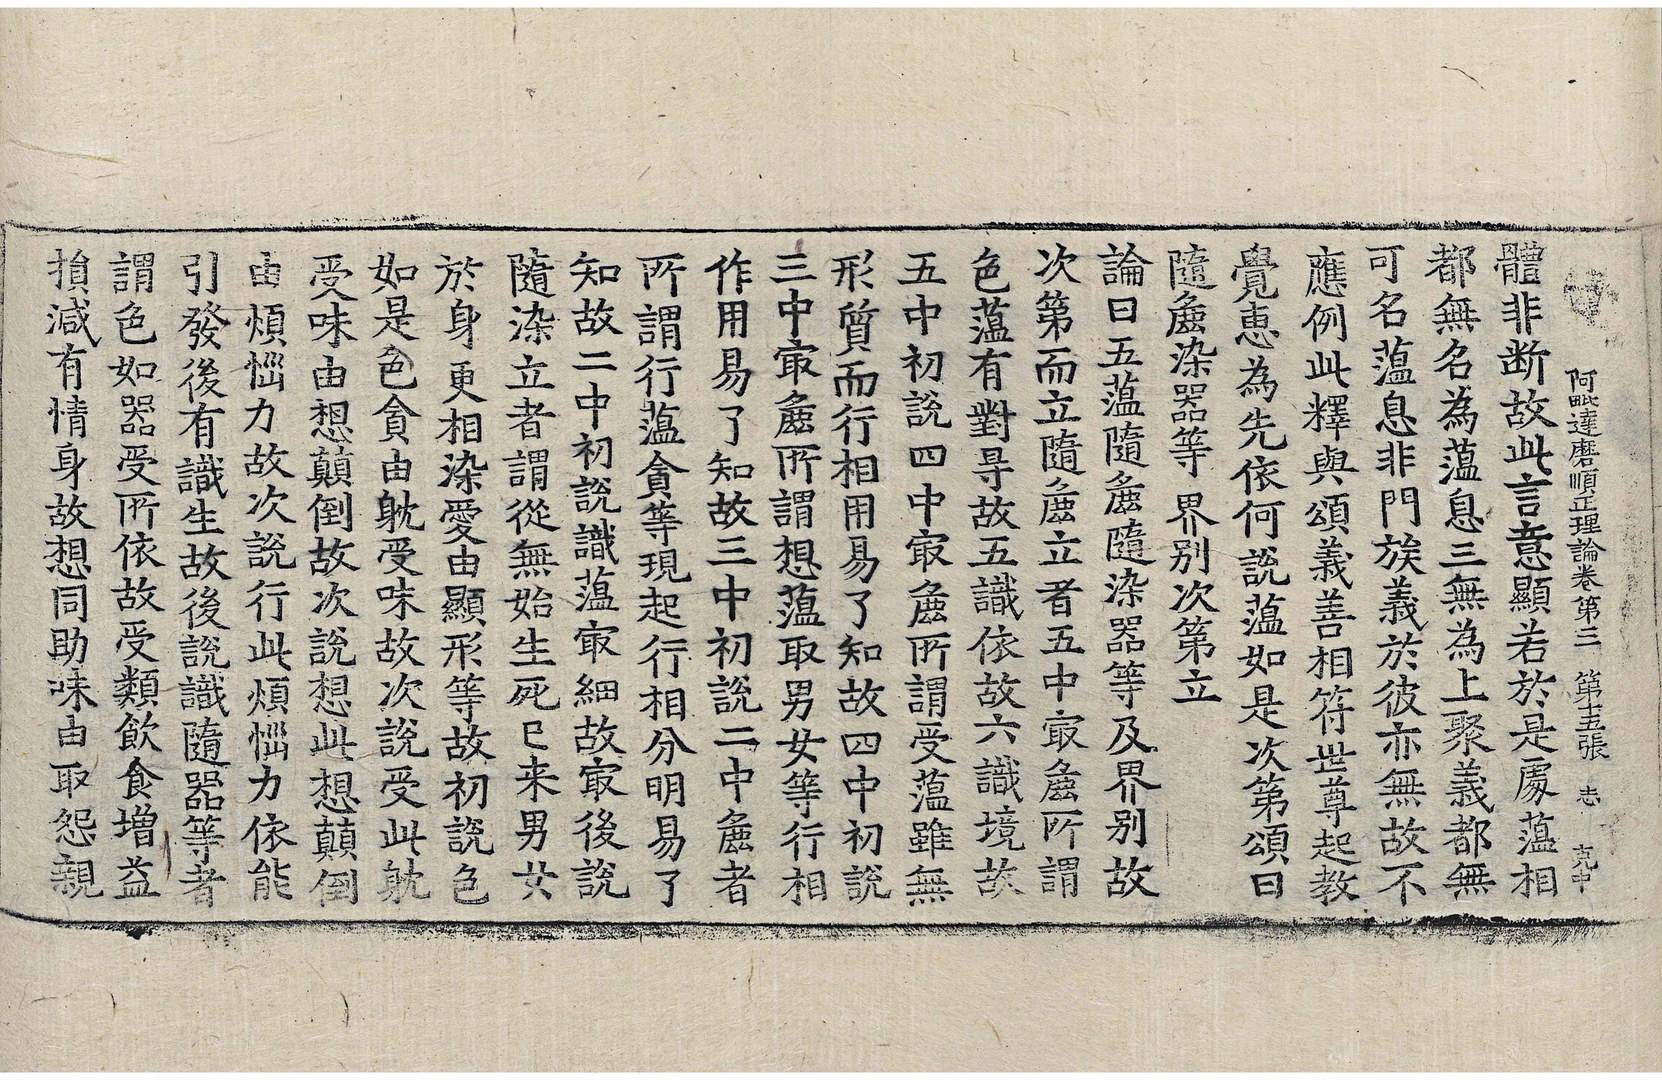 阿毗達磨順正理論卷第三　第十五張　志　克中
體非断故此言意顯若於是處薀相
都無名為薀息三無為上聚義都無
可名薀息非門族義於彼亦無故不
應例此釋與頌義善相符世尊起教
覺惠為先依何說薀如是次第頌曰
隨麁染器等　界別次第立
論曰五薀隨麁隨染器等及界别故
次第而立隨麁立者五中㝡麁所謂
色薀有對㝵故五識依故六識境故
五中初說四中㝡麁所謂受薀雖無
形質而行相用易了知故四中初說
三中㝡麁所謂想薀取男女等行相
作用易了知故三中初說二中麁者
所謂行薀貪等現起行相分明易了
知故二中初說識薀㝡細故㝡後說
隨染立者謂從無始生死已来男女
於身更相染愛由顯形等故初說色
如是色貪由躭受味故次說受此躭
受味由想顛倒故次說想此想顛倒
由煩惱力故次說行此煩惱力依能
引發後有識生故後說識隨器等者
謂色如器受所依故受類飲食增益
損減有情身故想同助味由取怨親